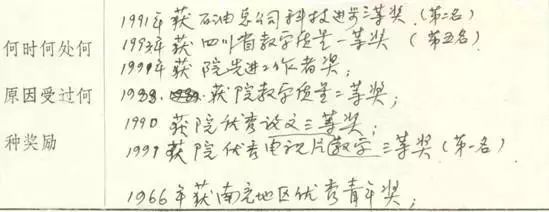 1991年获石油总公司科技进步三等奖(第二名)
1993年获四川省教学质量一等奖(第五名)
何时何处何
1990年获院先进工作者奖;
原因受过何
1988. 获院教学质量二等奖;
1990 获院优秀论文三等奖;
种奖励
1991 获院优秀电视片教学三等奖(第一名)
1966年获南充地区优秀青年奖;